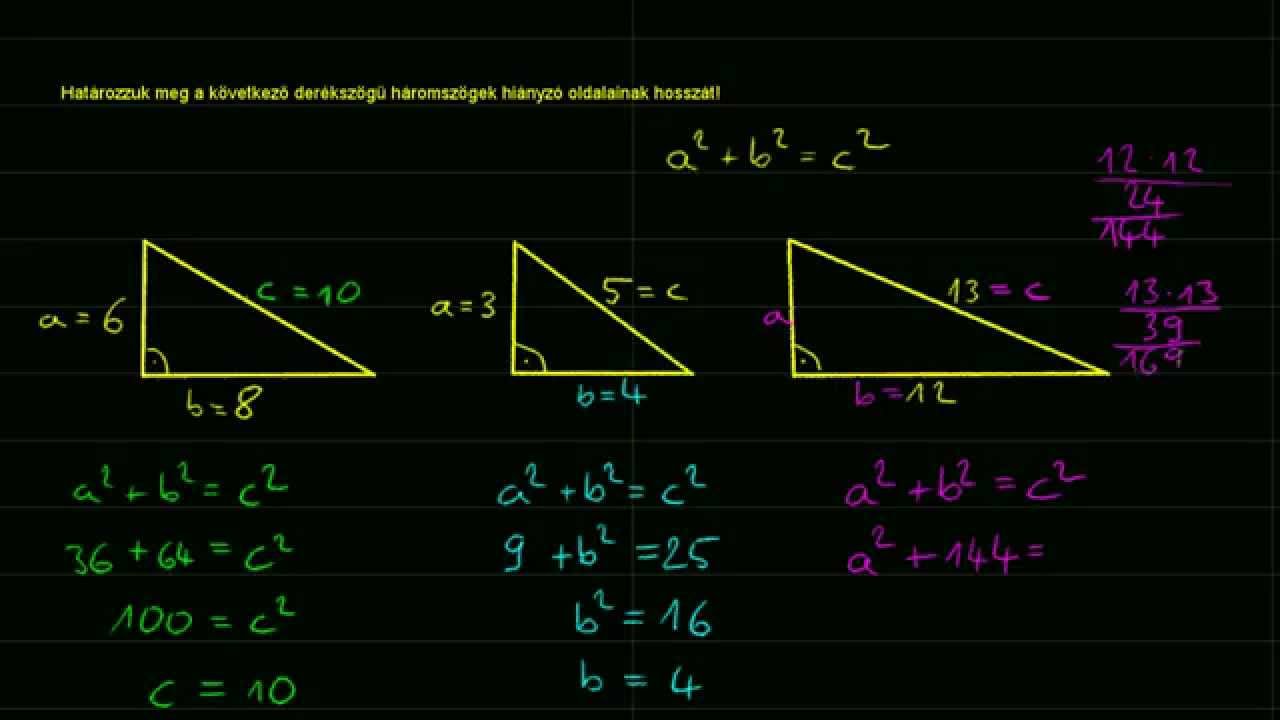 Határozzuk meg a következő derékszögű háromszögek hiányzó oldalainak hosszát!
a² + b² = c²
12 · 12
24
144
a = 6
c = 10
b = 8
a = 3
5 = c
b = 4
a
13 = c
b = 12
13 · 13
39
169
a² + b² = c²
36 + 64 = c²
100 = c²
c = 10
a² + b² = c²
9 + b² = 25
b² = 16
b = 4
a² + b² = c²
a² + 144 =